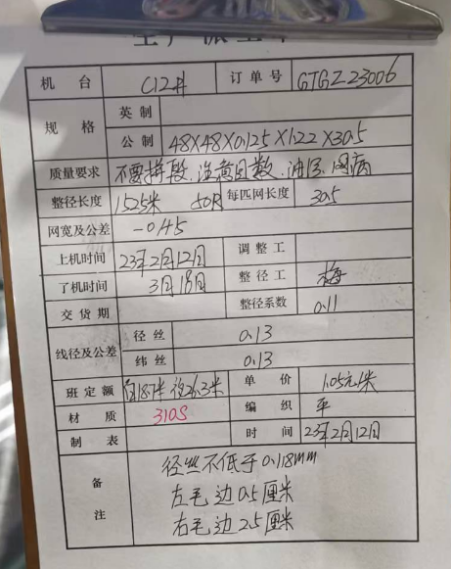 生产派工单
机台 C12# 订单号 GTGZ23006
规格 英制
公制 48X48X0.125X1.22X30.5
质量要求 不要拼段.注意目数.油污.网病
整径长度 1525米 50R 每匹网长度 30.5
网宽及公差 -0.45
上机时间 23年2月12日 调整工
了机时间 3月18日 整径工 梅
交货期 整径系数 0.11
线径及公差 径丝 0.13
纬丝 0.13
班定额 单价 1.05元/米
材质 310S 编织 平
制表 时间 23年2月12日
备注 径丝不低于0.118mm
左毛边0.5厘米
右毛边2.5厘米